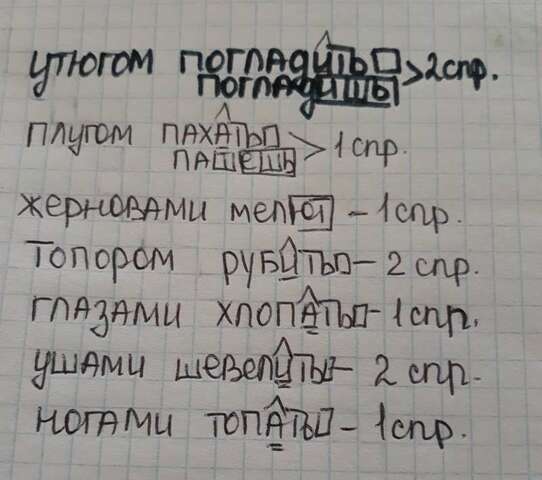 УТЮГОМ ПОГЛАДИТЬ > 2 спр.
ПОГЛАДИШЬ
ПЛУГОМ ПАХАТЬ > 1 спр.
ПАШЕШЬ
ЖЕРНОВАМИ МЕЛЮТ – 1 спр.
ТОПОРОМ РУБИТЬ – 2 спр.
ГЛАЗАМИ ХЛОПАТЬ – 1 спр.
УШАМИ ШЕВЕЛИТЬ – 2 спр.
НОГАМИ ТОПАТЬ – 1 спр.